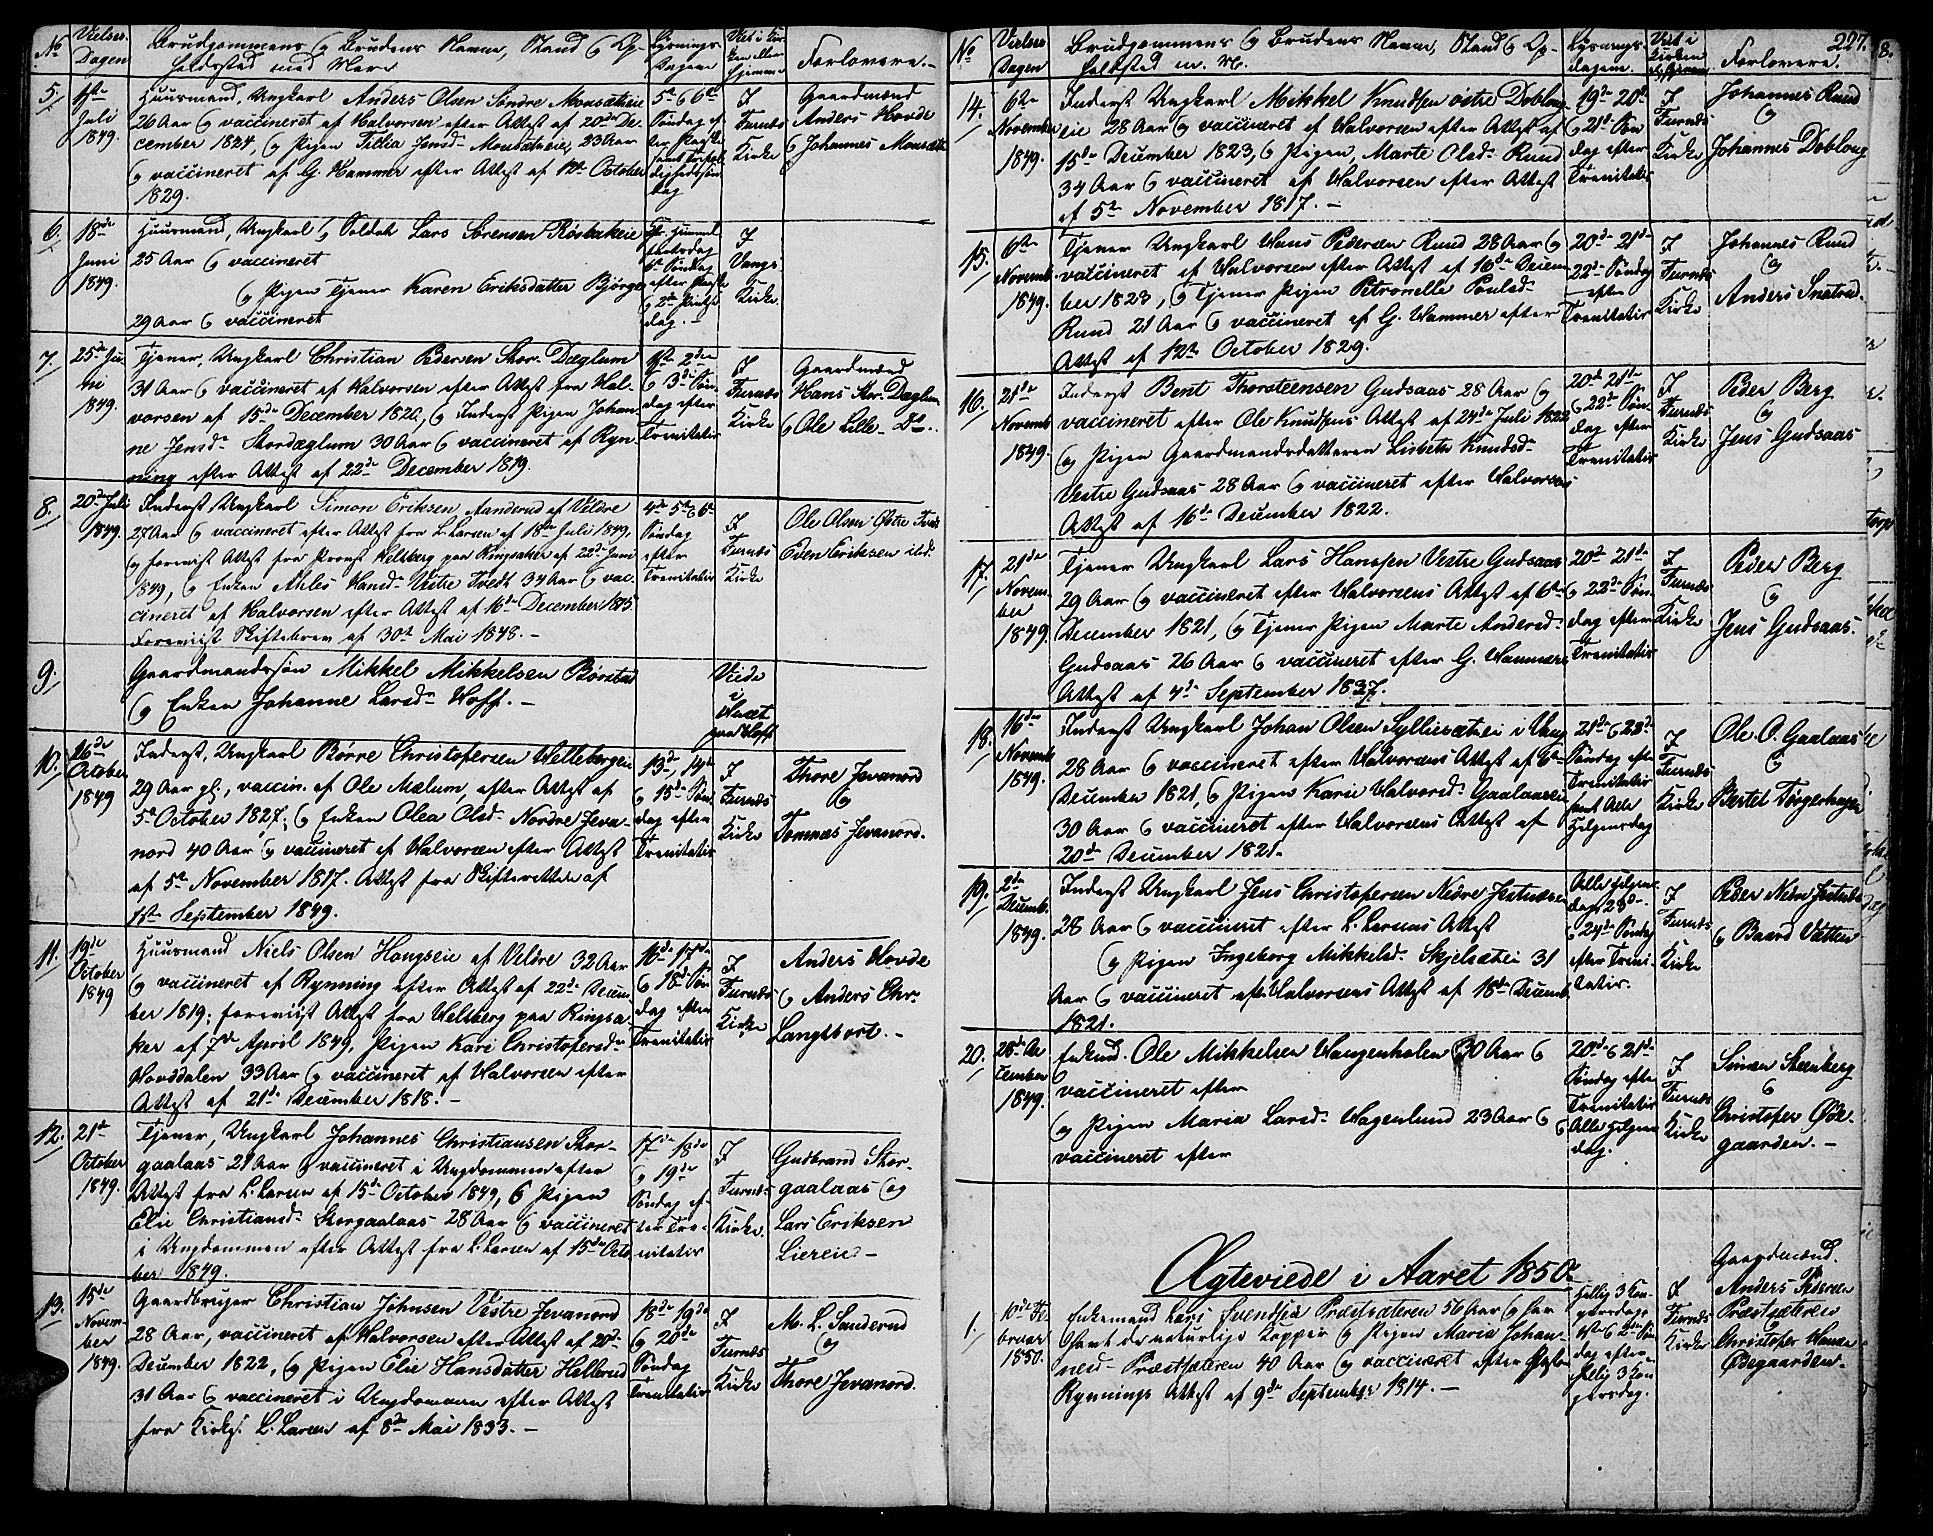 No
Vielses
Dagen
Brudgommens og Brudens Navne, Stand og Op-
holdssted med Mere
Lysnings-
Dagene
Viet i Kir-
ken eller
hjemme
Forlovere.
5.
1ste
Juli
1849.
Huusmand, Ungkarl Anders Olsen Søndre Monsætreie
26 Aar og vaccineret af Halvorsen efter Attest af 20de De-
cember 1824, og Pigen Jensd. Monsætreie, 23 Aar
og vaccineret af G. Hammer efter Attest af 12te October
1829.
5te og 6te
Søndag ef-
ter Paaske
I
Furnæs
Kirke
Gaardmænd
Anders Hovde
og Johannes Monsæter
6.
18de
Juni
1849.
Huusmand, Ungkarl og Soldat Lars Sørensen Rørbakeie
25 Aar og vaccineret
og Pigen Tjener Karen Eriksdatter Bjørge
29 Aar og vaccineret
6te Søndag
efter Paaske
og 2den Pintse
dag.-
I
Vangs
Kirke
7.
25de Ju-
ni
1849.
Tjener, Ungkarl Christian Pedersen Stor-Dæglum
31 Aar og vaccineret af Halvorsen efter Attest fra Hal-
vorsen af 15de December 1820, og Inderst Pigen Johan-
ne Jensd. Stordæglum 30 Aar og vaccineret af Ryn-
ning efter Attest af 22de December 1819.
1ste 2den
og 3die Søn-
dag efter
Trenitatis
I
Furnæs
Kirke
Gaardmænd
Hans Stor-Dæglum
og Ole Lille-Do.
8.
20de Juli
1849.
Inderst Ungkarl Simon Eriksen Aanderud af Veldre
27 Aar og vaccineret efter Attest fra L. Larsen af 18de Juli 1849,
og foreviist Attest fra Provst Hellberg paa Ringsaker af 22de Juni
1849, og Enken Ahles Hansd. Vestre Tvedt 34 Aar og vac-
cineret af Halvorsen efter Attest af 16de December 1815
Foreviist Skiftebrev af 30te Mai 1848.-
4de 5te og 6te
Søndag
efter
Trenitatis
I
Furnæs
Kirke
Ole Olsen Østre Tvedt
Even Eriksen ibd.
9.
Gaardmandssøn Mikkel Mikkelsen Børstad
og Enken Johanne Larsd. Hoff.-
Viede
i
Huset
paa Hoff
10.
26de
October
1849
Inderst, Ungkarl Børre Christophersen Hellebergeie
29 Aar gl., vaccin. af Ole Mælum, efter Attest af
5te October 1827; og Enken Olea Olsd. Nordre Jeva-
nord 40 Aar og vaccineret af Halvorsen efter Attest
af 5te November 1817. Attest fra Skifteretten af
1ste September 1849.
13de, 14de
og 15de Søn-
dag efter
Trenitatis
I
Furnæs
Kirke
Thore Jevanord
og
Tommæs Jevanord.
11.
19de
October
1849
Huusmand Niels Olsen Hongseie af Veldre 32 Aar
og vaccineret af Rynning efter Attest af 22de Decem-
ber 1819; foreviist Attest fra Hellberg paa Ringsa-
ker af 7de April 1849, Pigen Kari Christophersd.
Hovddalen 33 Aar og vaccineret af Halvorsen efter
Attest af 21de December 1818.-
16de 17de
og 18de Søn-
dag efter
Trenitatis
I
Furnæs
Kirke
Anders Hovde
og Anders Chr.
Langtbort.-
12.
21de
October
1849.
Tjener, Ungkarl Johannes Christiansen Stor-
gaalaas 21 Aar og vaccineret i Ungdommen efter
Attest fra L. Larsen af 15de October 1849, og Pigen
Elie Christiansd. Storgaalaas 28 Aar og vaccineret
i Ungdommen efter Attest fra L. Larsen af 15de Octo-
ber 1849.
17de 18de
og 19de
Søndag ef-
ter Tre-
nitatis
I
Furnæs
Kirke.
Gudbrand Stor-
gaalaas og
Lars Eriksen
Liereie-
13.
15de
Novem-
ber
1849.
Gaardbruger Christian Johnsen Vestre Jevanord
28 Aar, vaccineret af Halvorsen efter Attest af 20de
December 1822, og Pigen Elie Hansdatter Hellerud
31 Aar og vaccineret i Ungdommen efter Attest
fra Kirks. L. Larsen af 8de Mai 1833.-
18de 19de
og 20de
Søndag
Trenitatis
I
Furnæs
Kirke
M. L. Sanderud
og
Thore Jevanord.
227.
No
Vielses
Dagen
Brudgommens og Brudens Navne, Stand og Op-
holdsted m. M.
Lysnings-
dagene.
Viet i
Kirken
Forlovere.
14.
6te
November
1849.
Inderst Ungkarl Mikkel Knudsen østre Doblog-
eie 28 Aar og vaccineret af Halvorsen efter Attest af
15de December 1823, og Pigen, Marte Olsd. Rund
34 Aar og vaccineret af Halvorsen efter Attest
af 5te November 1817.-
19de 20de
og 21de Søn-
dag efter
Trenitatis
I
Furnæs
Kirke
Johannes Rund
og
Johannes Doblog
15.
6te
Novemb.
1849.
Tjener Ungkarl Hans Pedersen Rund 28 Aar og
vaccineret af Halvorsen efter Attest af 16de Decem-
ber 1823, og Tjener Pigen Petronelle Poulsd.
Rund 21 Aar og vaccineret af G. Hammer efter
Attest af 12te October 1829.
20de 21de
22de Søndag
efter
Trenitatis
I
Furnæs
Kirke
Johannes Rund
og
Anders
16.
21de
Novemb.
1849.
Inderst Bent Thorsteensen Gudsaas 28 Aar og
vaccineret efter Ole Knudsens Attest af 24de Juli 1822
og Pigen Gaardmandsdatteren Lisbeth Knudsd.
Vestre Gudsaas 28 Aar og vaccineret efter Halvorsens
Attest af 16de December 1822.
20de 21de
og 22de Søn-
dag efter
Trenitatis
I
Furnæs
Kirke
Peder Berg
og
Jens Gudsaas
17.
21de
Novem-
ber
1849.
Tjener Ungkarl Lars Hansen Vestre Gudsaas
29 Aar og vaccineret efter Halvorsens Attest af 6te
December 1821, og Tjener Pigen Marte Andersd.
Gudsaas 26 Aar og vaccineret efter G. Hammers
Attest af 4de September 1837.
20de 21de
og 22de Søn-
dag efter
Trenitatis
I
Furnæs
Kirke
Peder Berg
og
Jens Gudsaas.
18.
16de
Novemb.
1849.
Inderst Ungkarl Johan Olsen Sylliesætei i Vang
28 Aar og vaccineret efter Halvorsens Attest af 6te
December 1821, og Pigen Karie Halvorsd. Gaalaaseie
30 Aar og vaccineret efter Halvorsens Attest af
20de December 1821.
21de og 23de
Søndag efter
Trenitatis
samt Alle
Helgensdag
I
Furnæs
Kirke
Ole O. Gaalaas
og
Bertel Tørgerhagen
19.
2den
Decemb.
1849.
Inderst Ungkarl Jens Christophersen Nedre Jestnæs
28 Aar og vaccineret efter L. Larsens Attest
og Pigen Ingeborg Mikkelsd. Skjelsætei 31
Aar og vaccineret efter Halvorsens Attest af 18de Decemb.
1821.
Alle Helgens-
dag 23de
og 24de Søndag
efter Treni-
tatis.
I
Furnæs
Kirke
Peder Nedre Jestnæs
og Baard Vatten
20.
28de De-
cember
1849.
Enkemd. Ole Mikkelsen Hangenholen 30 Aar og
vaccineret efter
og Pigen Maria Larsd. Hagenlund 23 Aar og
vaccineret efter
20de og 21de
Søndag efter
Trenitatis
og Alle Helgens
dag.
I
Furnæs
Kirke
Simen Steenberg
og
Christopher Øde-
gaarden.-
Ægteviede i Aaret 1850.
1.
10de Fe-
bruar
1850.
Enkemand Lars Svendsen Præstsæteren 56 Aar og har
havt de naturlige Kopper og Pigen Maria Johan-
nesd. Præstsæteren 40 Aar og vaccineret efter
Rynnings Attest af 9de September 1814.-
Hellig 3 Kon-
gersdag
1ste og 2den Søn-
dag efter
Hellig 3 Kon-
gersdag.
I
Furnæs
Kirke
Gaardmænd.
Anders Pedersen
Præstsæteren
og
Christopher Hansen
Ødegaarden-